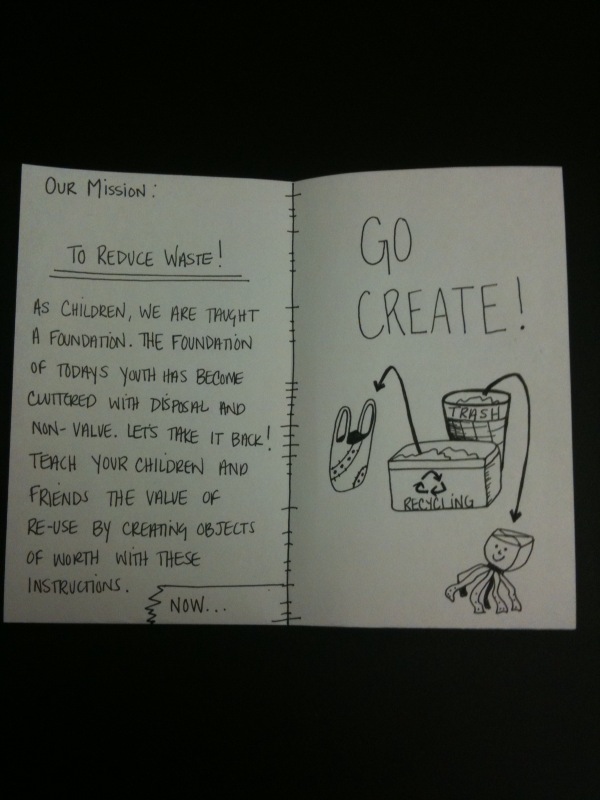 OUR MISSION:
TO REDUCE WASTE!
AS CHILDREN, WE ARE TAUGHT
A FOUNDATION. THE FOUNDATION
OF TODAYS YOUTH HAS BECOME
CLUTTERED WITH DISPOSAL AND
NON-VALUE. LET'S TAKE IT BACK!
TEACH YOUR CHILDREN AND
FRIENDS THE VALUE OF
RE-USE BY CREATING OBJECTS
OF WORTH WITH THESE
INSTRUCTIONS.
NOW...
GO
CREATE!
TRASH
RECYCLING